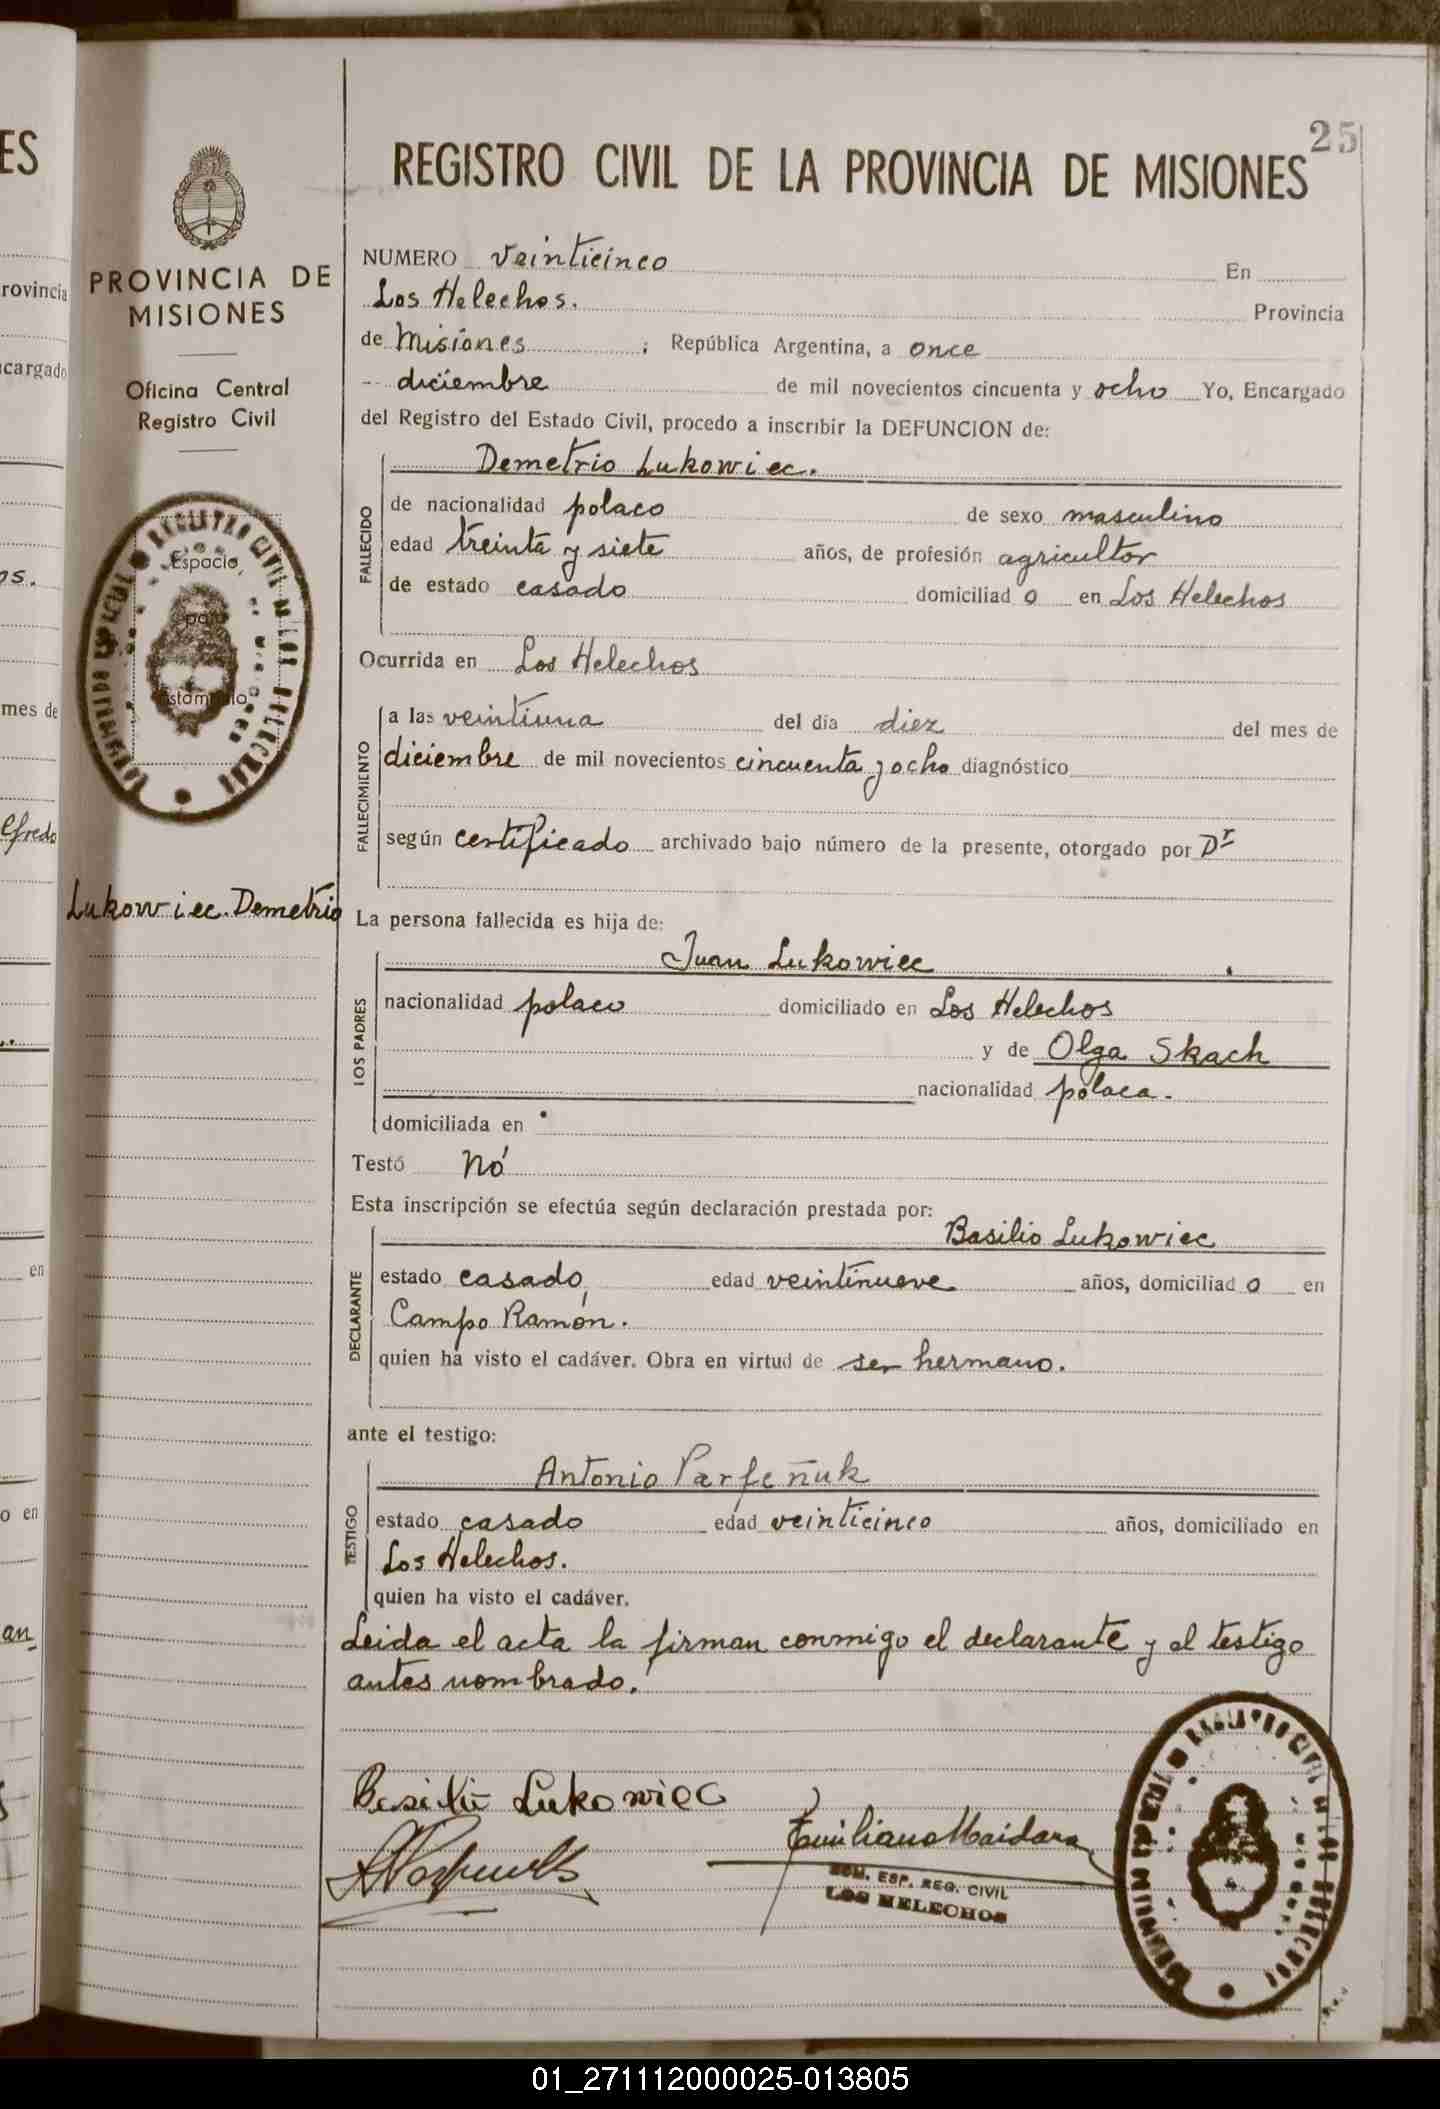 25
REGISTRO CIVIL DE LA PROVINCIA DE MISIONES
PROVINCIA DE
MISIONES
Oficina Central
Registro Civil
Espacio
para
Lukowiec. Demetrio
NUMERO veinticinco En
Los Helechos. Provincia
de Misiones ; República Argentina, a once
diciembre de mil novecientos cincuenta y ocho Yo, Encargado
del Registro del Estado Civil, procedo a inscribir la DEFUNCION de:
Demetrio Lukowiec.
FALLECIDO
de nacionalidad polaco de sexo masculino
edad treinta y siete años, de profesión agricultor
de estado casado domiciliad o en Los Helechos
Ocurrida en Los Helechos
FALLECIMIENTO
a las veintiuna del dia diez del mes de
diciembre de mil novecientos cincuenta y ocho diagnóstico
según certificado archivado bajo número de la presente, otorgado por Dr
La persona fallecida es hija de:
Juan Lukowiec
LOS PADRES
nacionalidad polaco domiciliado en Los Helechos
y de Olga Skach
nacionalidad polaca.
domiciliada en
Testó Nó
Esta inscripción se efectúa según declaración prestada por:
Basilio Lukowiec
DECLARANTE
estado casado, edad veintinueve años, domiciliad o en
Campo Ramón.
quien ha visto el cadáver. Obra en virtud de ser hermano.
ante el testigo:
Antonio Parfeñuk
TESTIGO
estado casado edad veinticinco años, domiciliado en
Los Helechos.
quien ha visto el cadáver.
Leida el acta la firman conmigo el declarante y el testigo
antes nombrado.
Lukowiec
Emiliano Maidana
ESP. REG. CIVIL
LOS HELECHOS
ES
rovincia
cargado
os.
mes de
efredo
en
o en
an
01_271112000025-013805